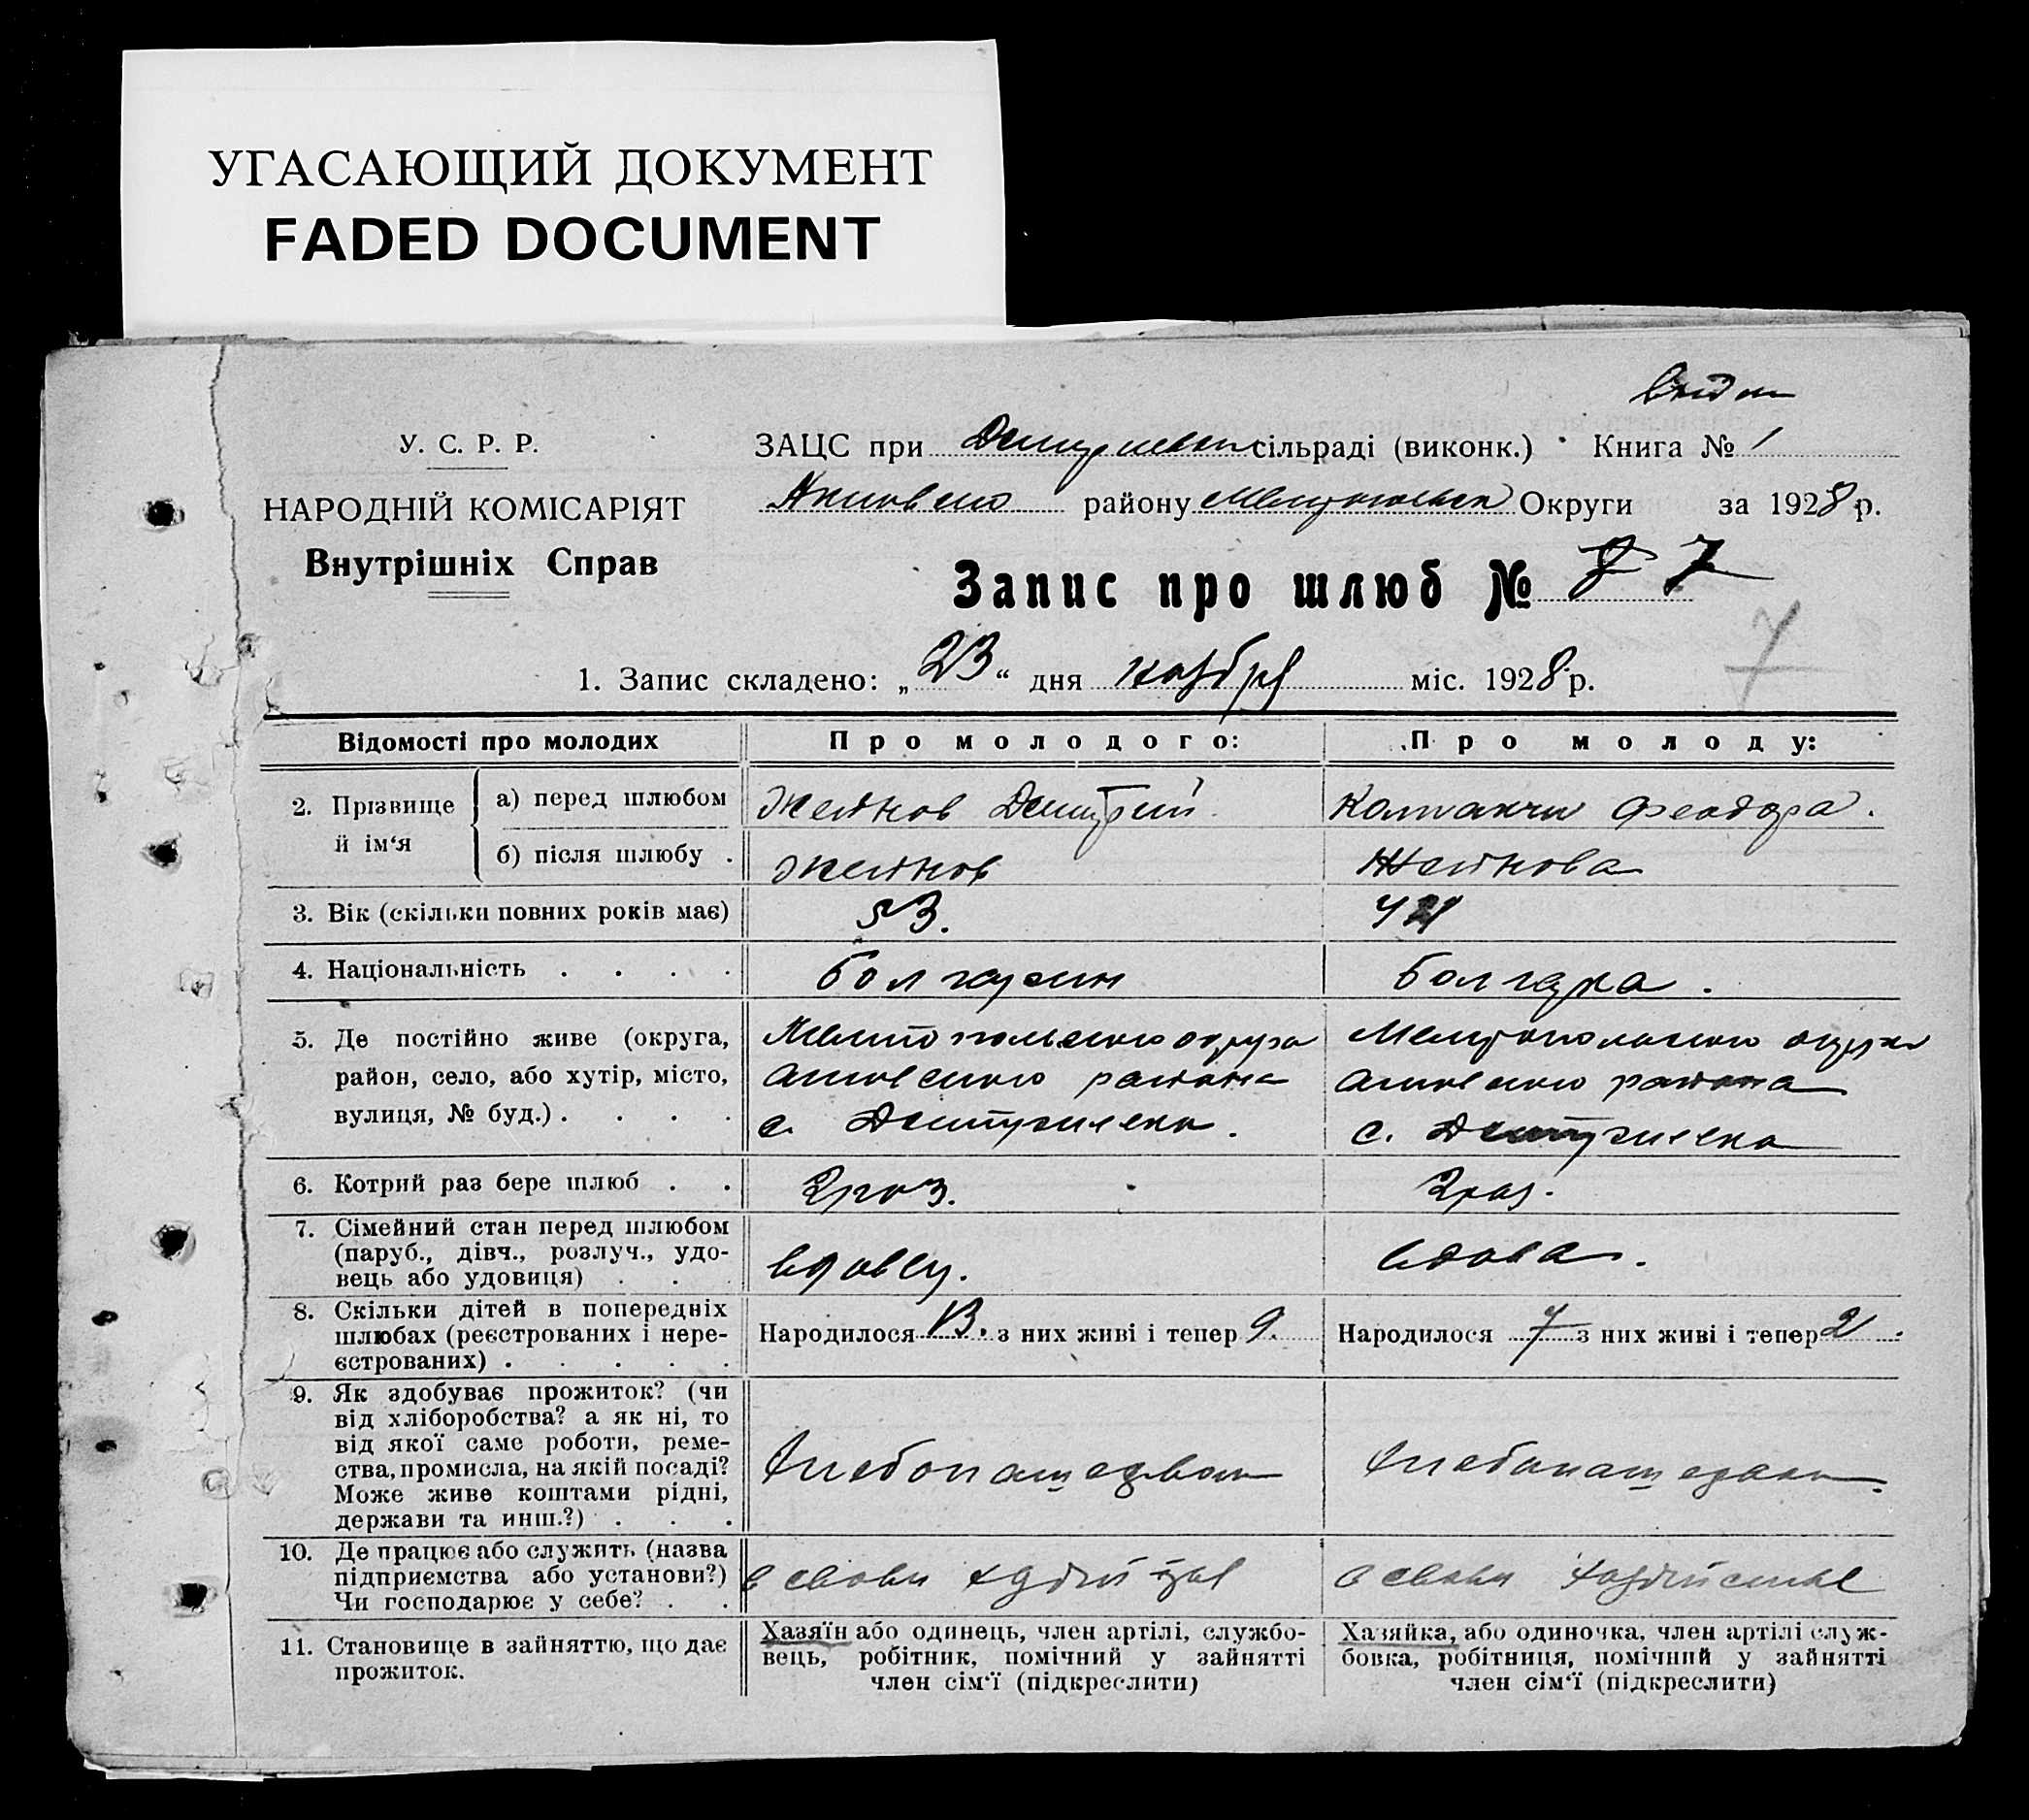 УГАСАЮЩИЙ ДОКУМЕНТ
FADED DOCUMENT
У. С. Р. Р.
НАРОДНІЙ КОМІСАРІЯТ
Внутрішніх Справ
ЗАЦС при сільраді (виконк.) Книга № 1
району Округи за 1928 р.
Запис про шлюб № 7
7
1. Запис складено: „23“ дня ноября міс. 1928 р.
Відомості про молодих
Про молодого:
Про молоду:
2. Прізвище й ім‘я
а) перед шлюбом
Жейнов Дмитрий
Феодора.
б) після шлюбу .
Жейнов
Жейнова
3. Вік (скільки повних років має)
53.
4. Національність . . . .
Болгарин
Болгарка.
5. Де постійно живе (округа,
район, село, або хутір, місто,
вулиця, № буд.) . . . .
Мелитопольского округа
района
с. Дмитриевка.
Мелитопольского округа
района
с. Дмитриевка
6. Котрий раз бере шлюб . .
2 раз.
2 раз.
7. Сімейний стан перед шлюбом
(паруб., дівч., розлуч., удо-
вець або удовиця) . .
вдовец.
вдова.
8. Скільки дітей в попередніх
шлюбах (реєстрованих і нере-
єстрованих) . . . . .
Народилося 13. з них живі і тепер 9.
Народилося 7 з них живі і тепер 2
9. Як здобуває прожиток? (чи
від хліборобства? а як ні, то
від якої саме роботи, реме-
ства, промисла, на якій посаді?
Може живе коштами рідні,
держави та инш.?) . . .
10. Де працює або служить (назва
підприємства або установи?)
Чи господарює у себе? . .
в своем
в своем
11. Становище в зайняттю, що дає
прожиток.
Хазяїн або одинець, член артілі, службо-
вець, робітник, помічний у зайнятті
член сім‘ї (підкреслити)
Хазяйка, або одиночка, член артілі служ-
бовка, робітниця, помічний у зайнятті
член сім‘ї (підкреслити)